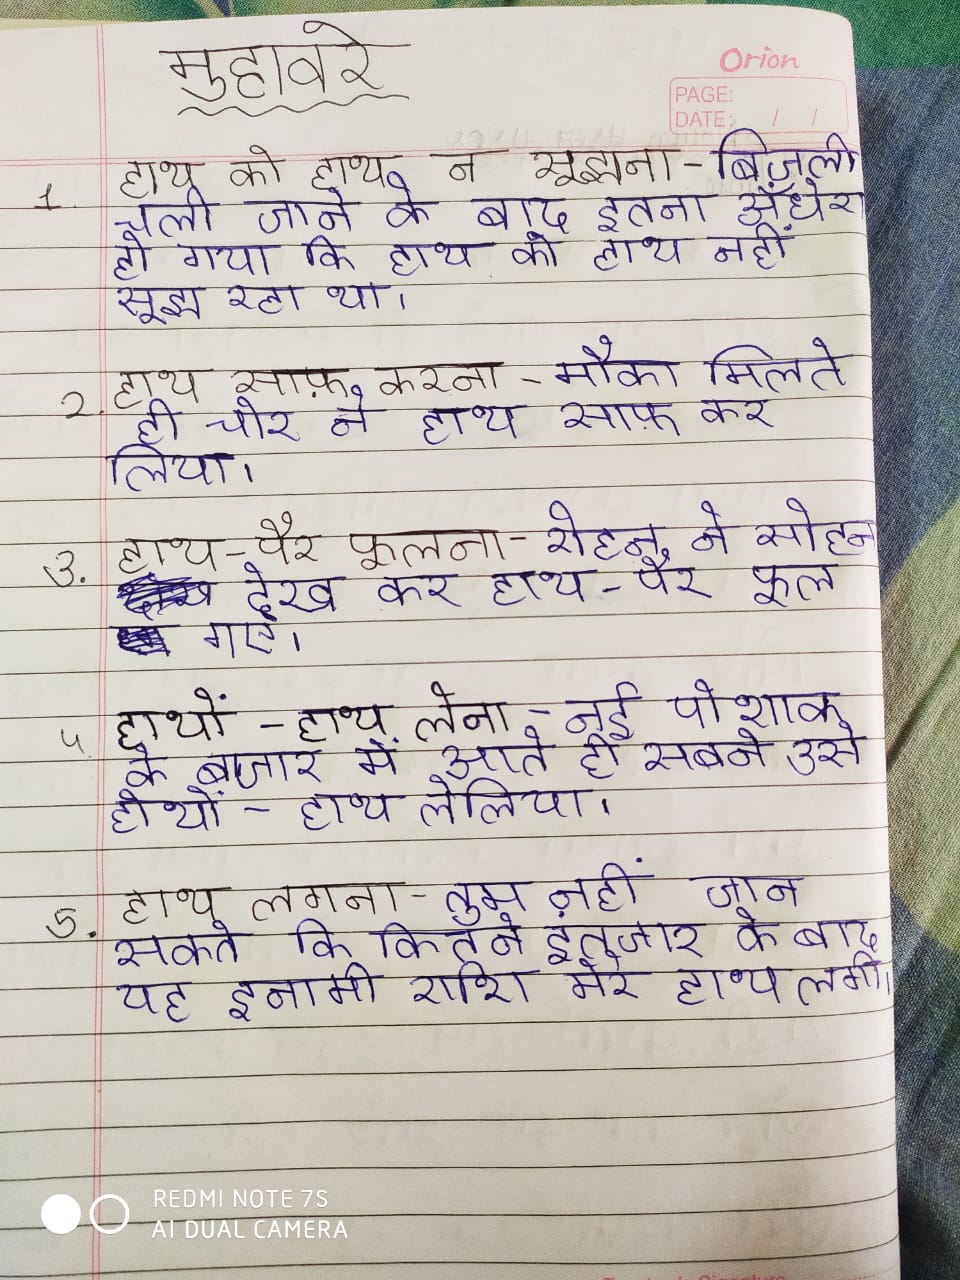 मुहावरे
Orion
PAGE:
DATE: / /
1. हाथ को हाथ न सूझना - बिजली
चली जाने के बाद इतना अँधेरा
हो गया कि हाथ को हाथ नहीं
सूझ रहा था।
2. हाथ साफ़ करना - मौका मिलते
ही चोर ने हाथ साफ़ कर
लिया।
3. हाथ-पैर फूलना - रोहन ने सोहन
देख कर हाथ-पैर फूल
गए।
4. हाथों - हाथ लेना - नई पोशाक
के बाजार में आते ही सबने उसे
होथों - हाथ लेलिया।
5. हाथ लगना - तुम नहीं जान
सकते कि कितने इंतजार के बाद
यह इनामी राशि मेरे हाथ लगी।
REDMI NOTE 7S
AI DUAL CAMERA